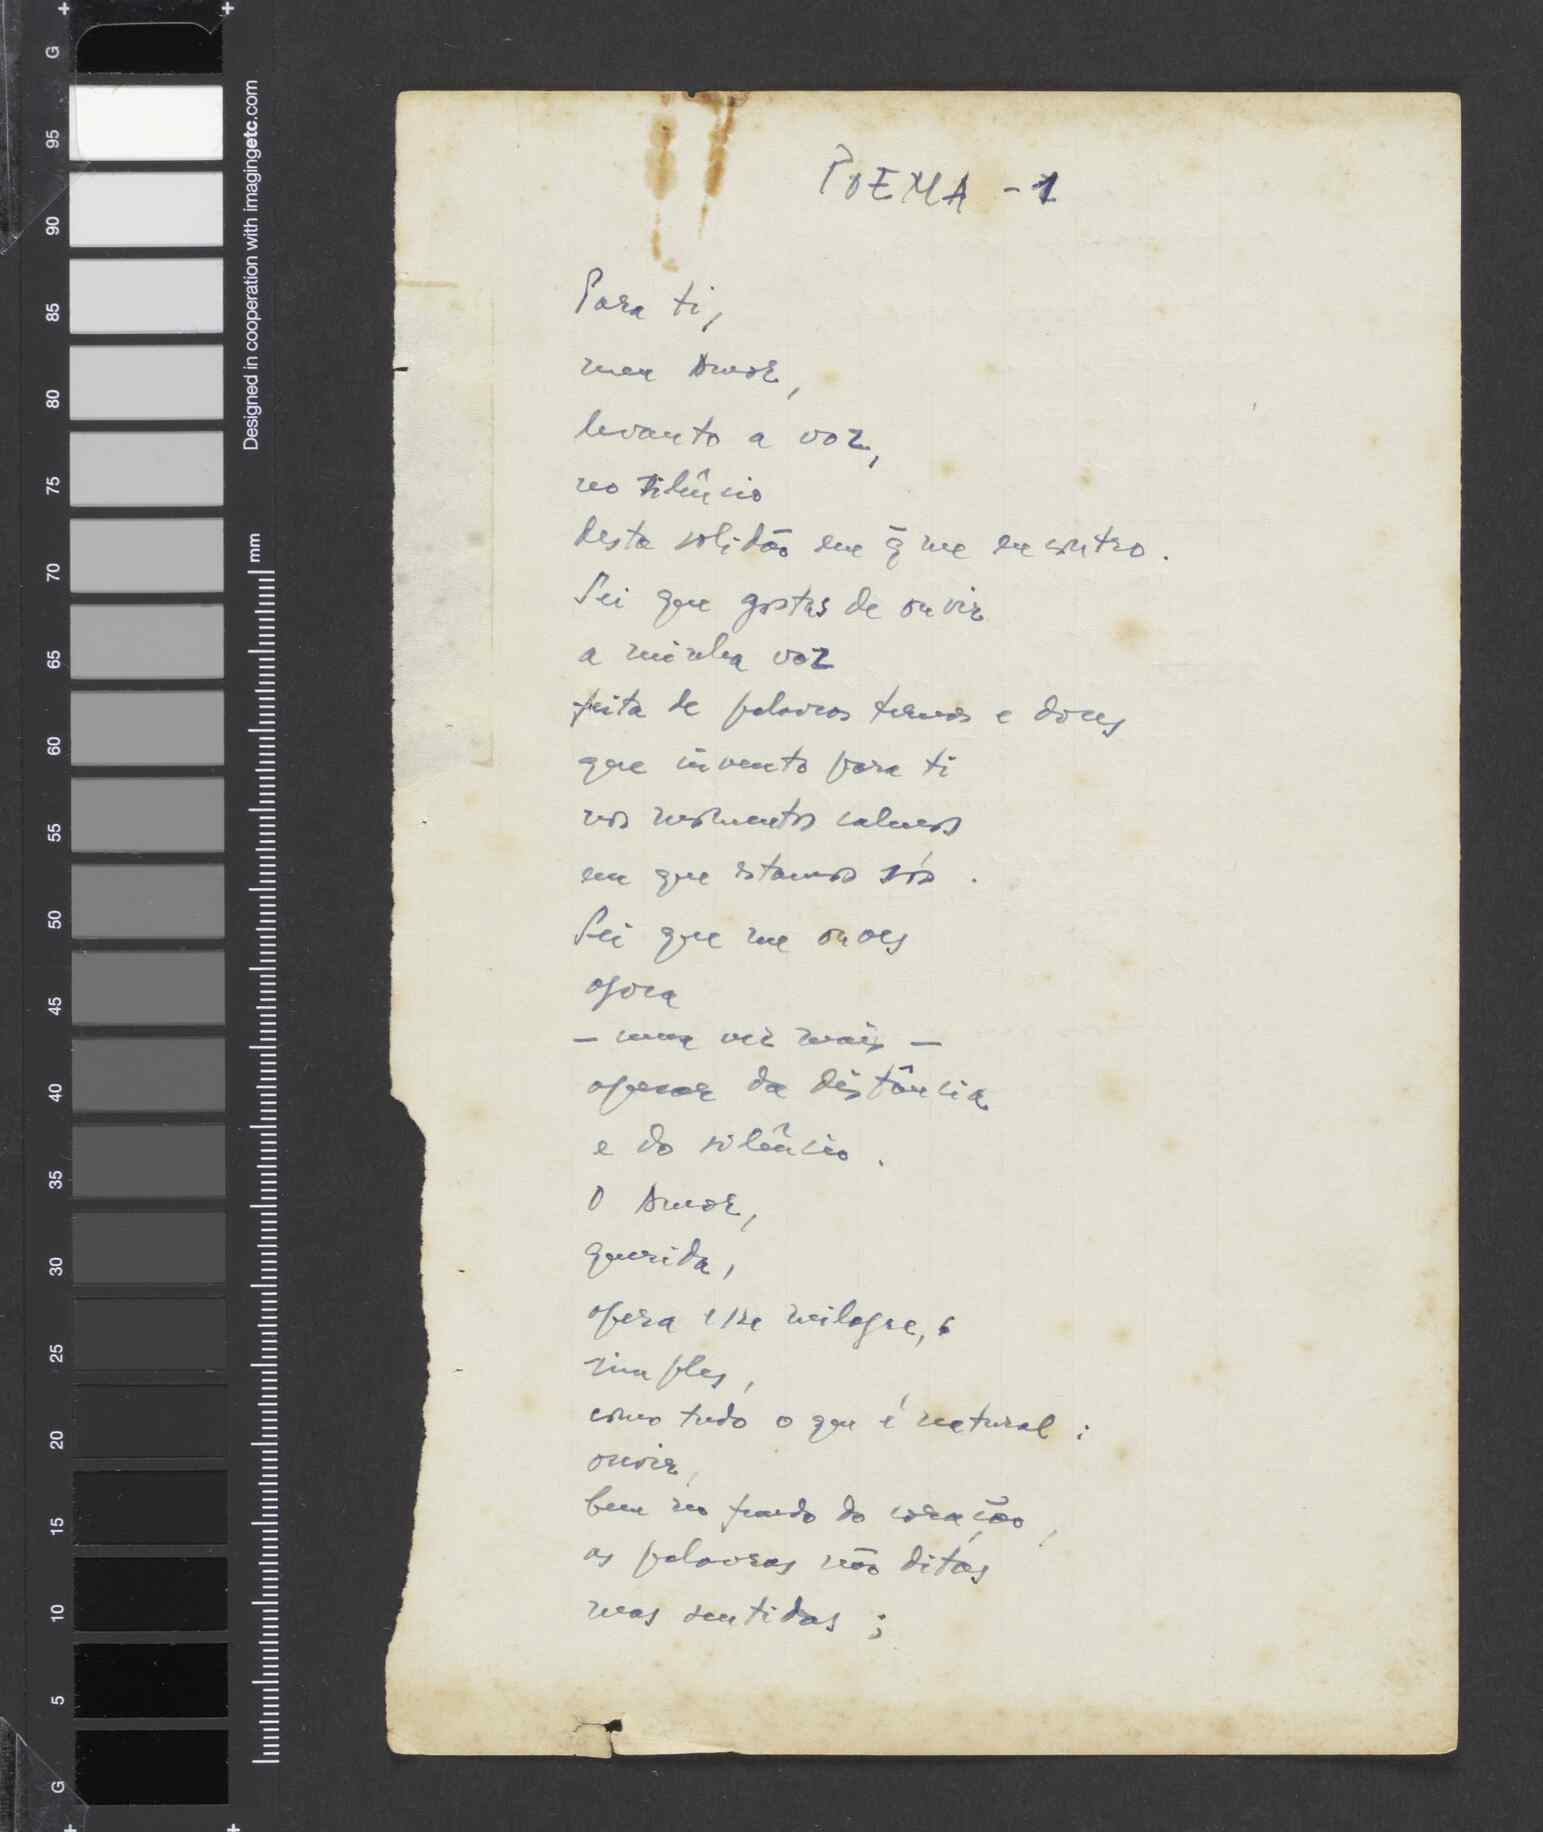 G
95
90
85
80
75
70
65
60
55
50
45
40
35
30
25
20
15
10
5
G
Designed in cooperation with imagingetc.com
mm
POEMA - 1
Para ti,
meu Amor,
levanto a voz,
no silêncio
desta solidão em q̃ me encontro.
Sei que gostas de ouvir
a minha voz
feita de palavras ternas e doces
que invento para ti
nos momentos calmos
em que estamos sós.
Sei que me ouves
agora
– uma vez mais –
apesar da distância
e do silêncio.
O Amor,
querida,
opera esse milagre,
simples,
como tudo o que é natural:
ouvir,
bem no fundo do coração,
as palavras não ditas
mas sentidas;